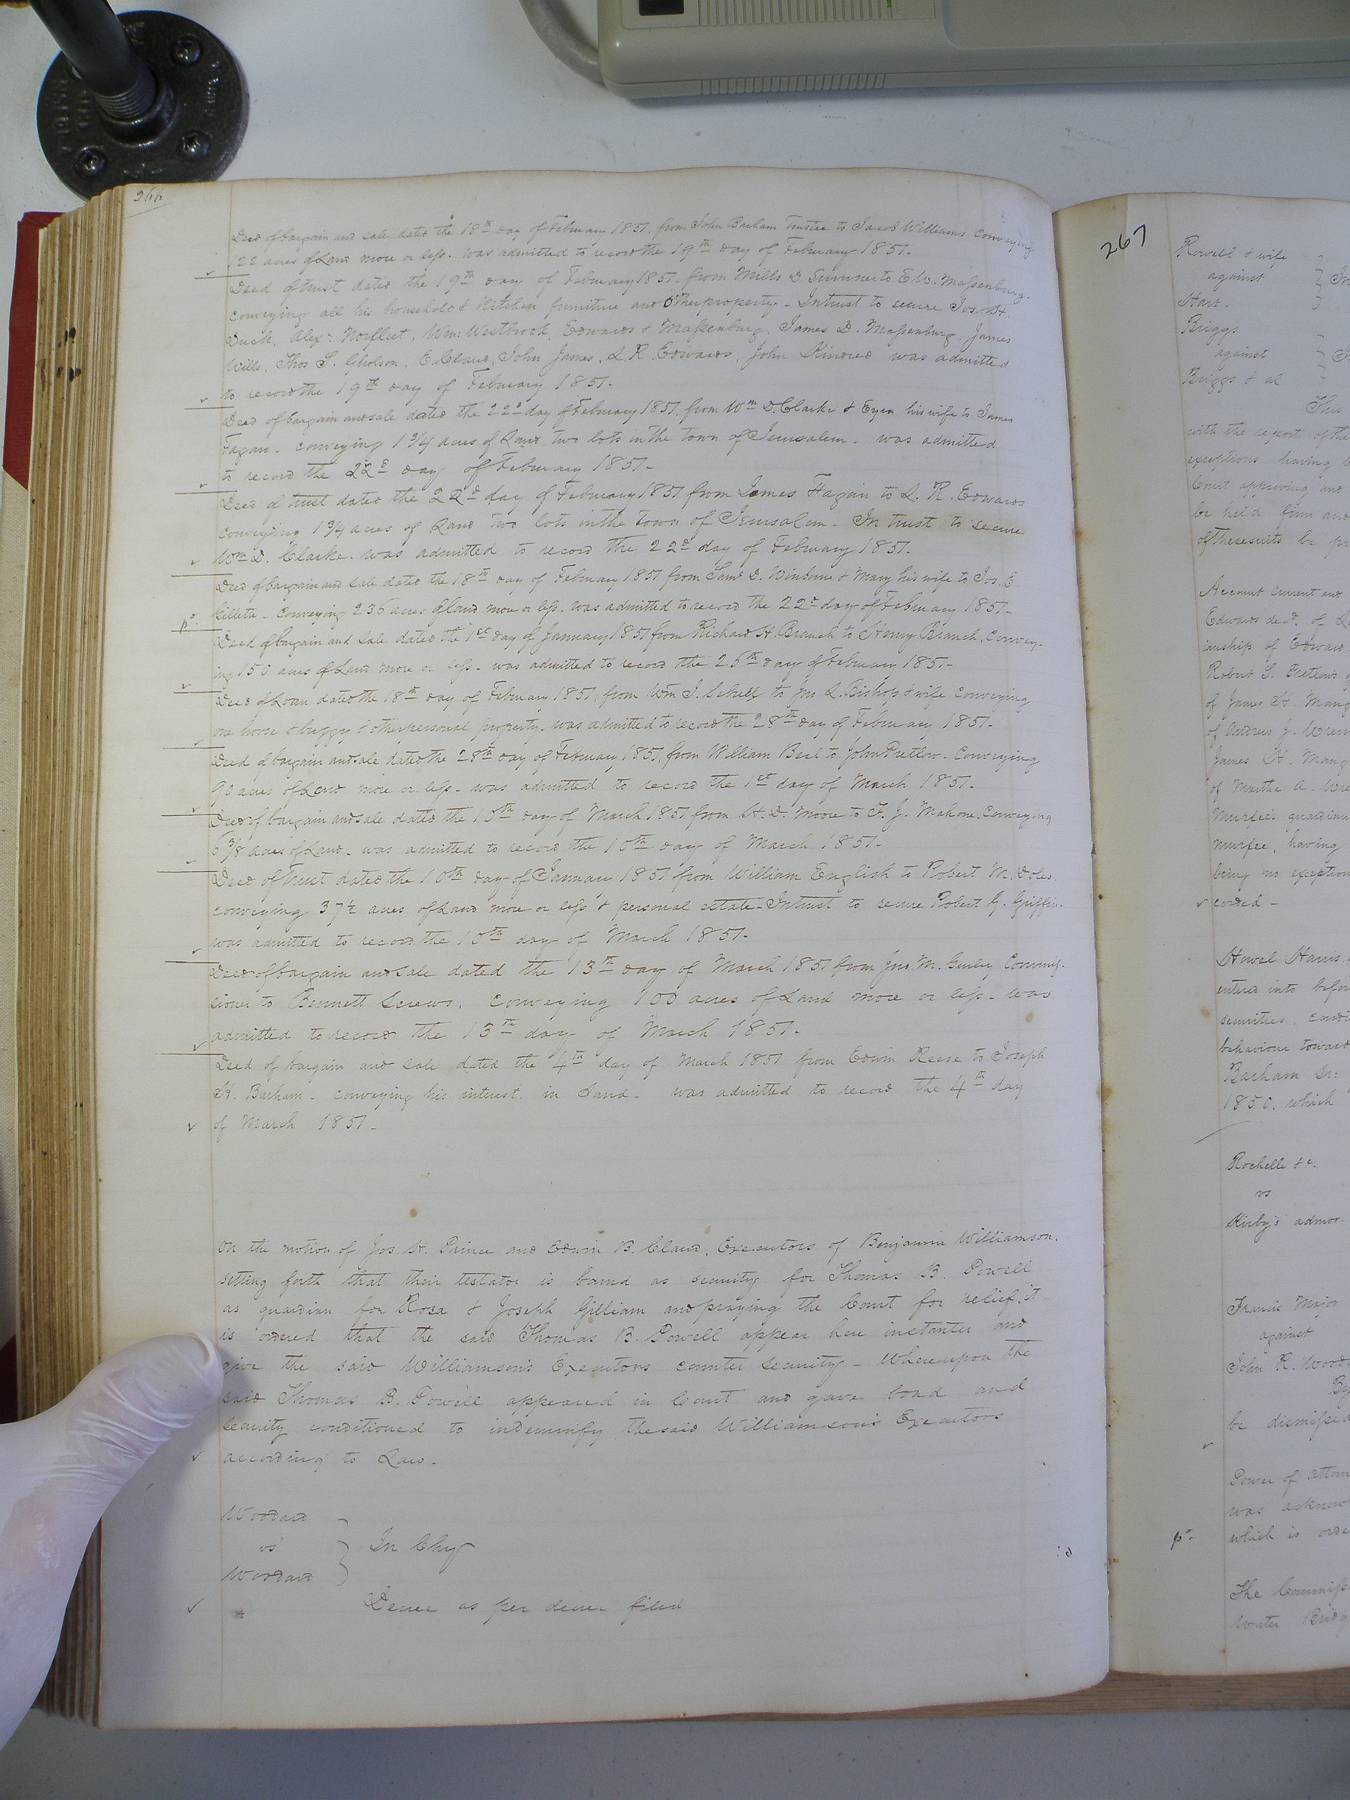 266
Deed of bargain and sale dated the 18th day of February 1851. from John Barham Trustee to Jacob Williams Conveying
122 acres of Land more or less. was admitted to record the 19th day of February 1851.
Deed of trust dated the 19th day of February 1851. from Mills D Sumner to Elv. Massenburg.
conveying all his household & kitchen furniture and other property - In trust to secure Jos. H.
Duck, Alexr. Norfleet, Wm. Westbrook, Edwards & Massenburg, James D. Massenburg, James
Wills, Thos S. Gholson, E. Claud, John James, L. R. Edwards, John Kindred was admitted
to record the 19th day of February 1851.
Deed of bargain and sale dated the 22d day of February 1851. from Wm D. Clarke & his wife to James
Fagan. conveying 1 3/4 acres of Land two lots in the town of Jerusalem. was admitted
to record the 22d day of February 1851-
Deed of trust dated the 22d day of February 1851 from James Fagain to L. R. Edwards
conveying 1 3/4 acres of Land two lots in the town of Jerusalem. In trust to secure
Wm D. Clarke. was admitted to record the 22d day of February 1851.
Deed of bargain and sale dated the 18th day of February 1851 from Saml D. Winborne & Mary his wife to Jos. E.
Gillette - Conveying 236 acres of Land more or less. was admitted to record the 22d day of February 1851-
Deed of bargain and sale dated the 1st day of January 1851 from Richard H. Branch to Henry Branch, Convey-
ing 150 acres of Land more or less - was admitted to record the 26th day of February 1851-
Deed of Loan dated the 18th day of February 1851, from Wm J. Sebrell to L. Bishop & wife Conveying
one horse & buggy & other personal property. was admitted to record the 28th day of February 1851-
Deed of bargain and sale dated the 28th day of February 1851. from William Bell to John Pretlow. Conveying
90 acres of Land more or less - was admitted to record the 1st day of March 1851-
Deed of bargain and sale dated the 10th day of March 1851 from H. D. Moore to F. J. Mahone. Conveying
6 3/8 acres of Land. was admitted to record the 10th day of March 1851-
Deed of trust dated the 10th day of January 1851 from William English to Robert M. Doles.
conveying 37½ acres of Land more or less & personal estate - In trust to secure Robert J. Griffin.
was admitted to record the 10th day of March 1851-
Deed of bargain and sale dated the 13th day of March 1851 from Jno. M. Gurley Commis-
sioner to Bennett Screws. Conveying 100 acres of Land more or less - was
admitted to record the 13th day of March 1851-
Deed of bargain and sale dated the 4th day of March 1851 from Edwin Reese to Joseph
H. Barham - conveying his interest in Land. was admitted to record the 4th day
of March 1851-
On the motion of Jos. H. Prince and Edwin B. Claud, Executors of Benjamin Williamson.
setting forth that their testator is bound as security for Thomas B. Powell
as guardian for Rosa & Joseph Gilliam and praying the Court for relief, it
is ordered that the said Thomas B. Powell appear here instanter and
give the said Williamson's Executors counter security - Whereupon the
said Thomas B. Powell appeared in Court and gave bond and
security conditioned to indemnify the said Williamson's Executors
according to Law-
Woodard
vs
Woodard
In Chy
Decree as per decree filed
267
Rowell & wife
against
Hart.
Briggs
against
Briggs & al
This
with the report of the
exceptions having
Court approving and
be held firm and
of these suits be
Account Current and
Edwards decd. of
ianship of Edward
Robert S. Pretlow
of James H.
of Andrew J.
James H.
of Martha A.
Murfee's guardian
Murfee, having
being no exception
corded -
Howel Harris
entered into before
securities, condi
behaviour toward
Barham Sr:
1850. which
Rochelle &c.
vs
Kirby's admor.
Francis Major
against
John R. Wood
By
be dismissed
Power of attorn
was acknow
which is orde
The Commiss
Water Bridg